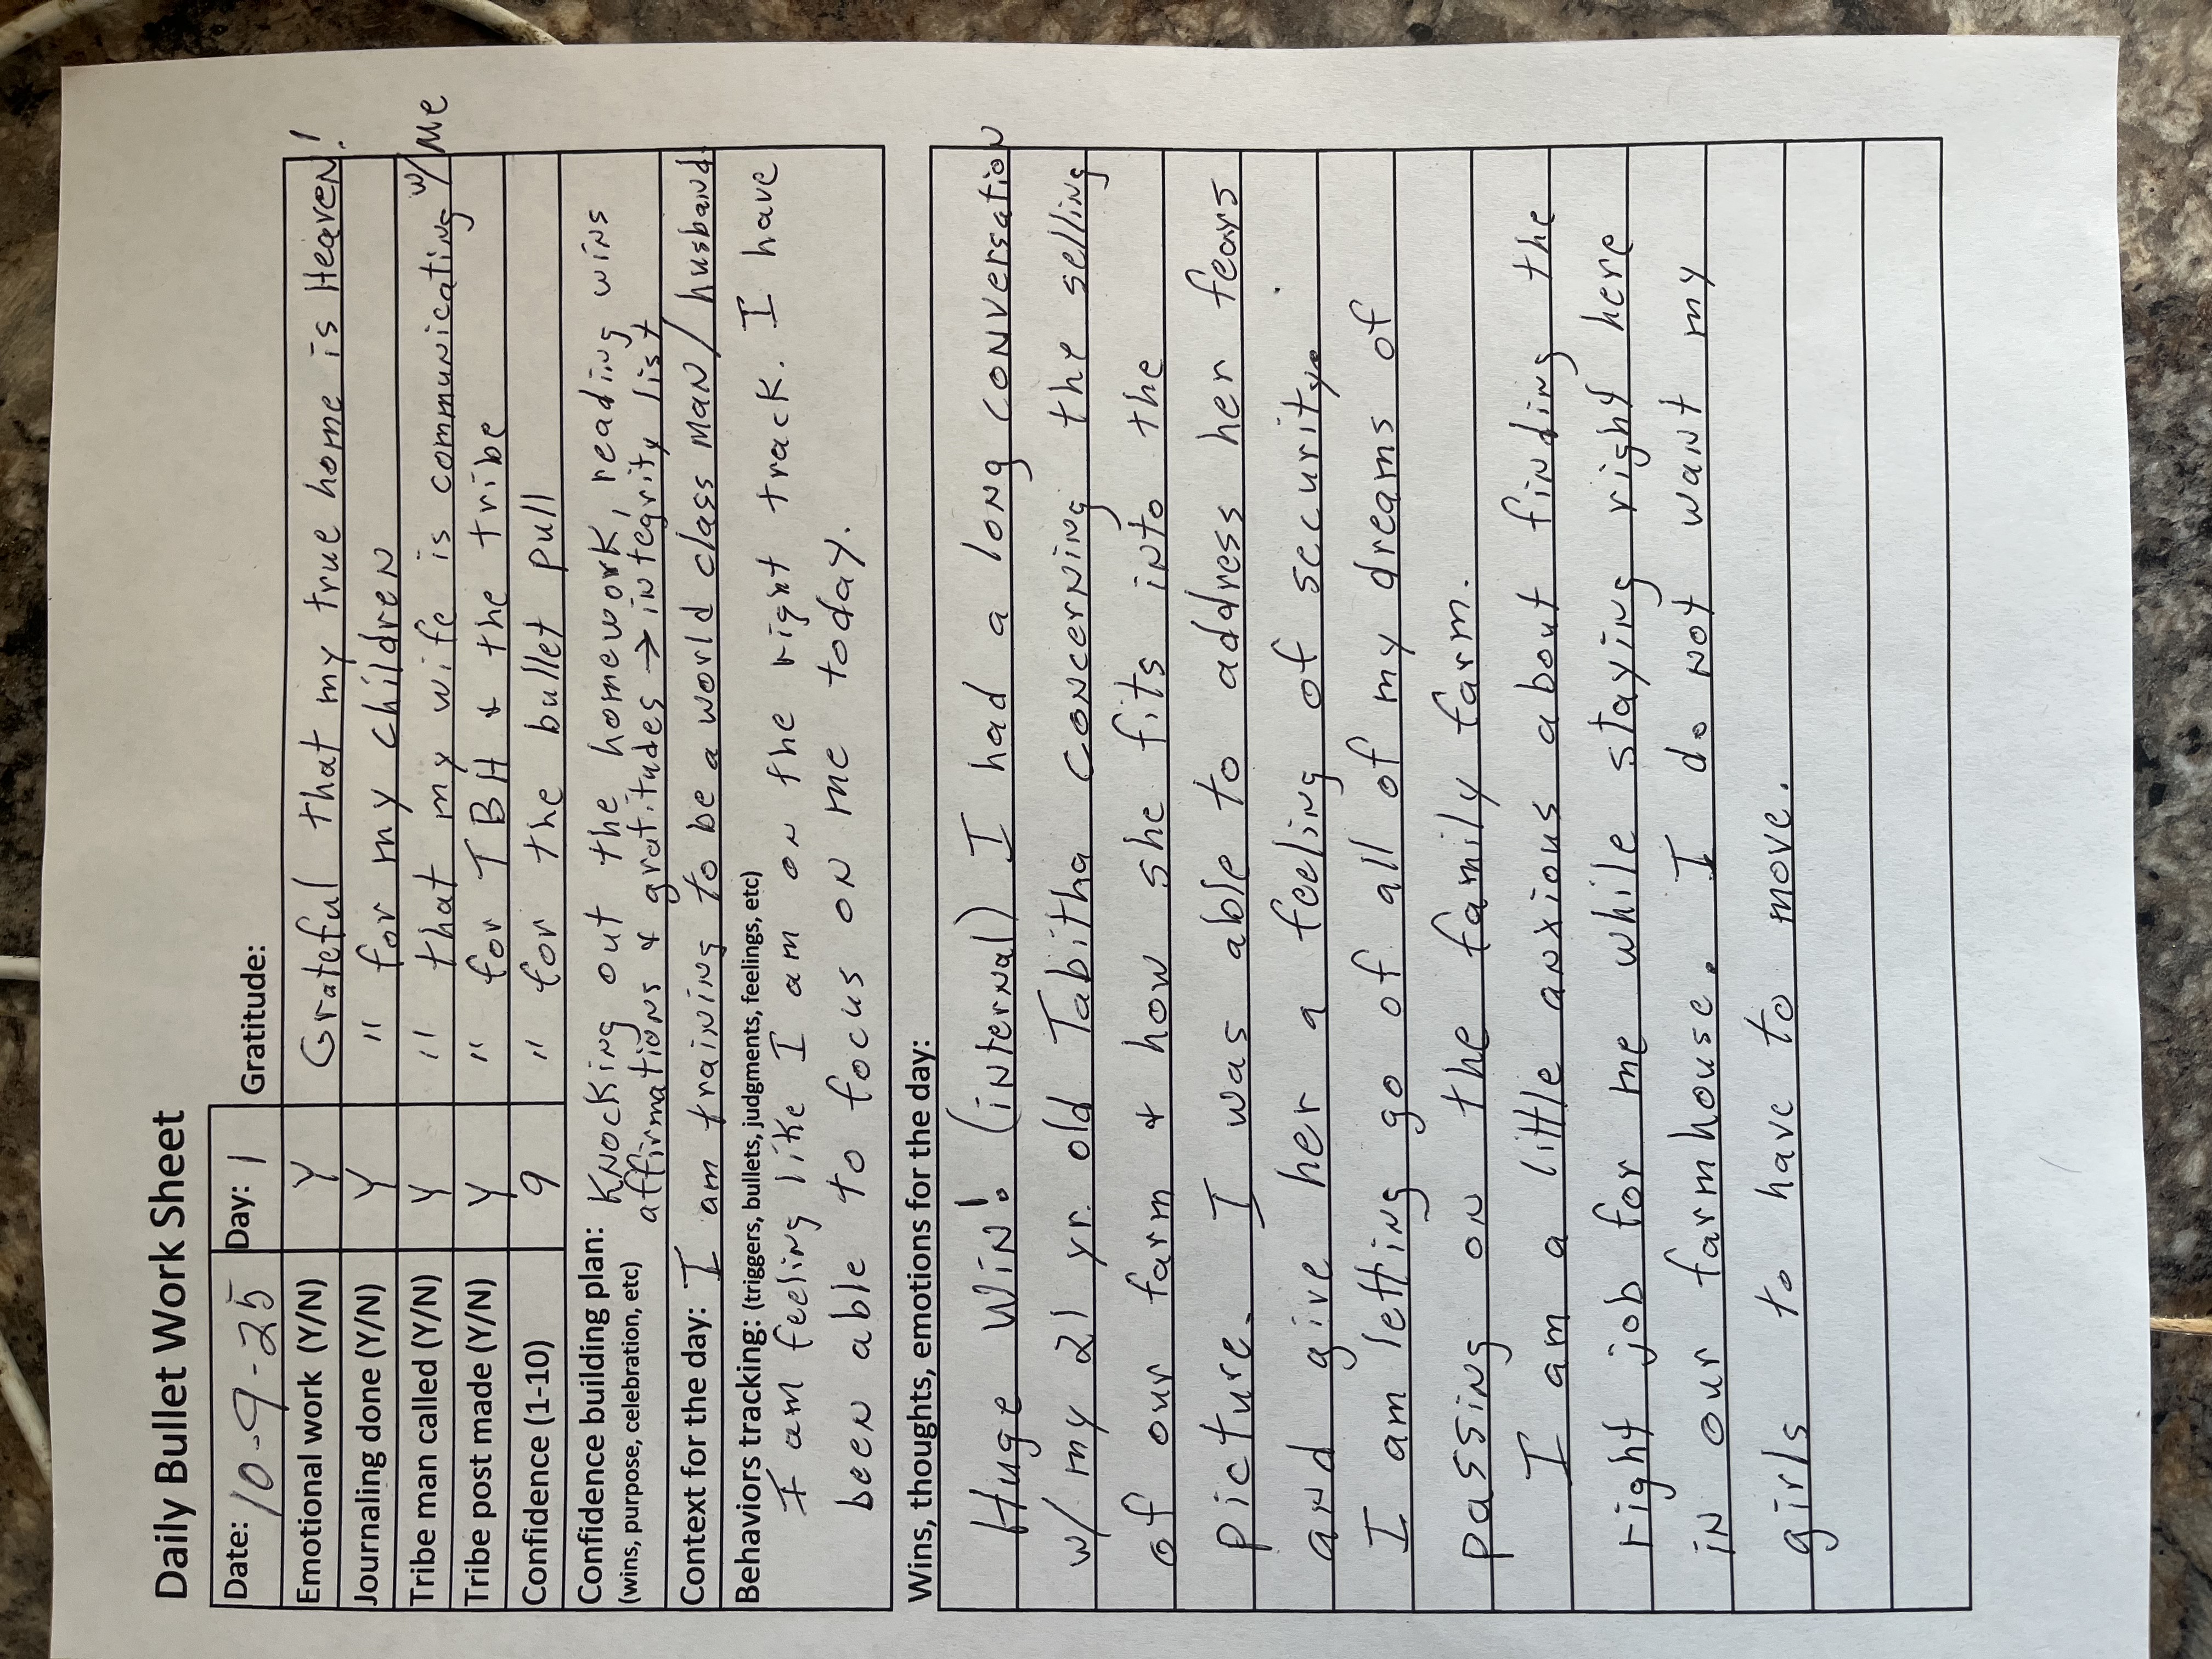 Daily Bullet Work Sheet
Date: 10-9-25 Day: 1 Gratitude:
Emotional work (Y/N) Y Grateful that my true home is Heaven!
Journaling done (Y/N) Y " for my children
Tribe man called (Y/N) Y " that my wife is communicating w/ me
Tribe post made (Y/N) Y " for TBH & the tribe
Confidence (1-10) 9 " for the bullet pull
Confidence building plan: Knocking out the homework, reading wins
(wins, purpose, celebration, etc) affirmations & gratitudes → integrity list
Context for the day: I am training to be a world class man/husband.
Behaviors tracking: (triggers, bullets, judgments, feelings, etc)
I am feeling like I am on the right track. I have
been able to focus on me today.
Wins, thoughts, emotions for the day:
Huge Win! (internal) I had a long conversation
w/ my 21 yr. old Tabitha concerning the selling
of our farm & how she fits into the
picture. I was able to address her fears
and give her a feeling of security.
I am letting go of all of my dreams of
passing on the family farm.
I am a little anxious about finding the
right job for me while staying right here
in our farmhouse. I do not want my
girls to have to move.